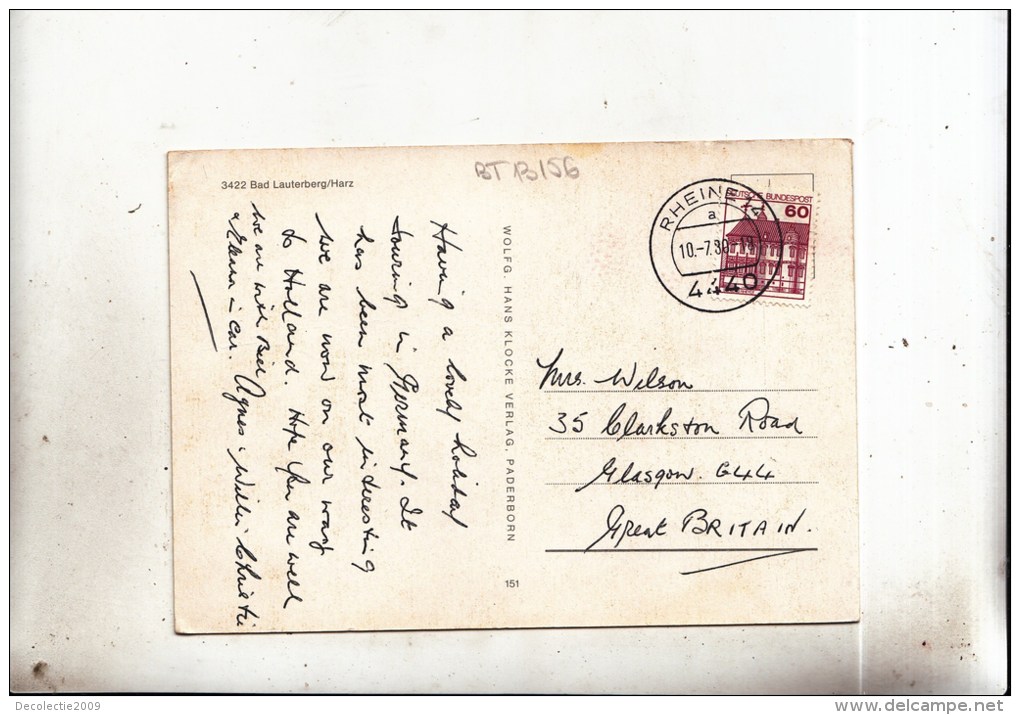 BT B156
3422 Bad Lauterberg/Harz
Having a lovely holiday
touring in Germany. It
has been most interesting
we are now on our way
to Holland. Hope you are well
We are with Bill
& Elena in car. Agnes & Willie Christie
WOLFG. HANS KLOCKE VERLAG, PADERBORN
151
DEUTSCHE BUNDESPOST
60
RHEINE
a
10.-7.80
4440
Mrs. Wilson
35 Clarkston Road
Glasgow. G44
Great BRITAIN.
Decolectie2009
delcampe.net